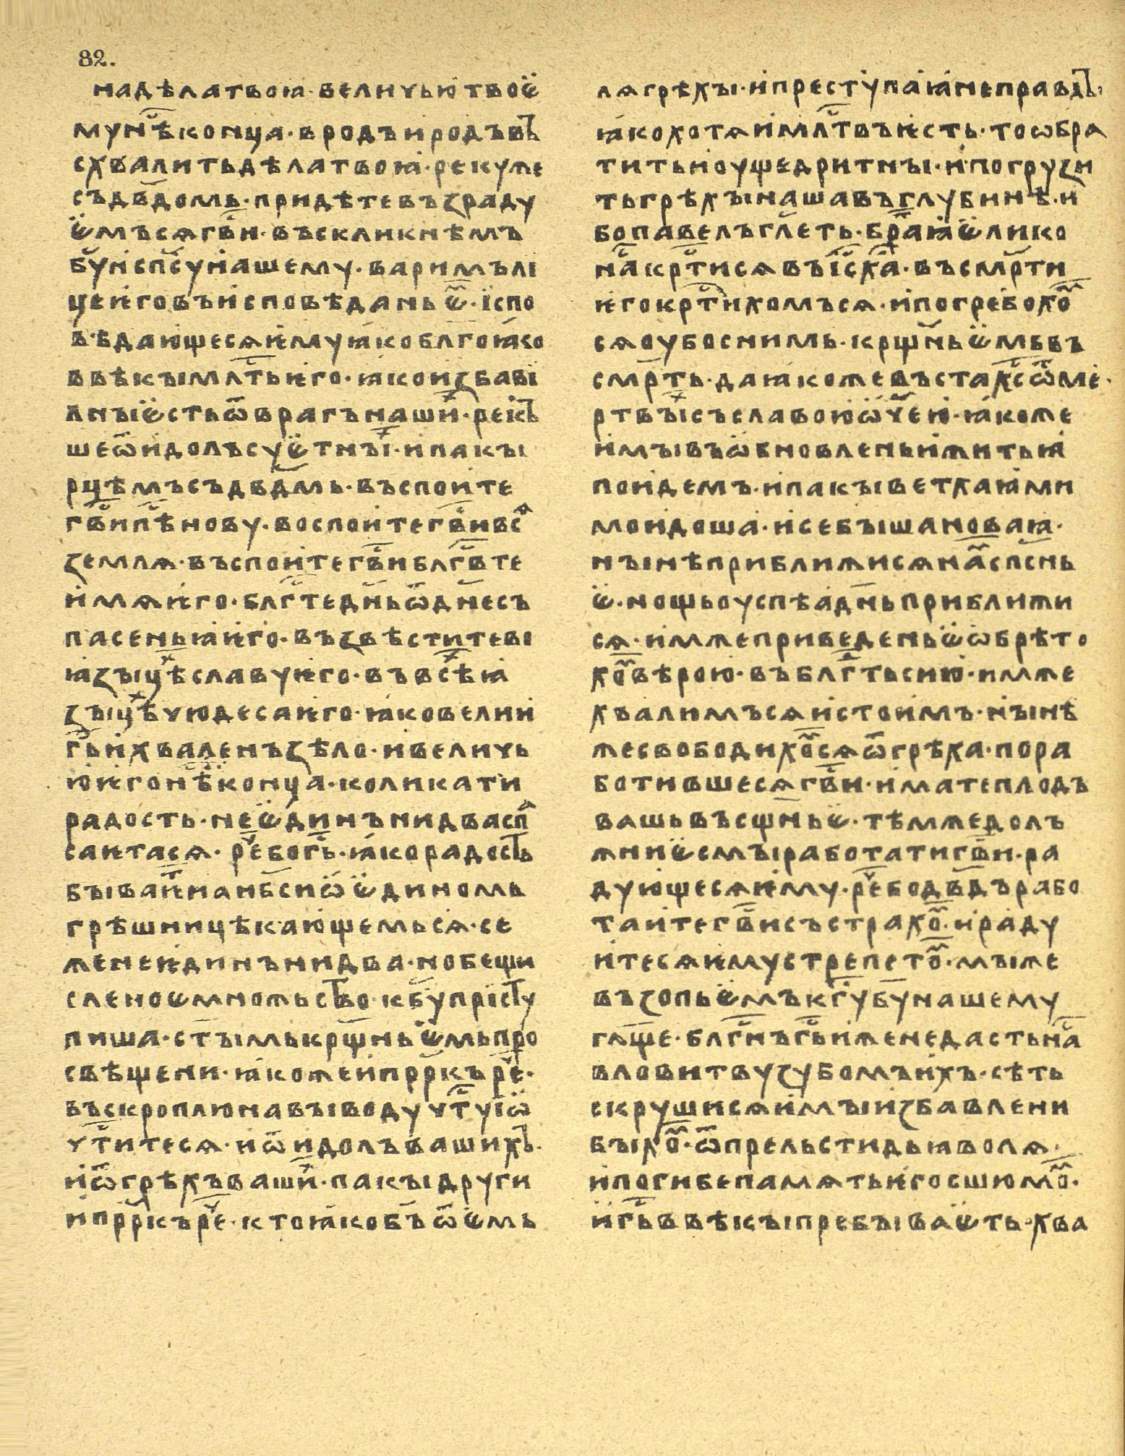 82.
надѣлатвоꙗ· величью твоѥ
мунѣ҇конца· в родъ и родъ въ
схвалить дѣла твоꙗ· рекуще
съ дв҃домь· придѣте въꙁраду
ѥмъсѧ гв҃и· въскликнѣмъ
бу҃ и сп҃су нашему· варимъ лі
це ѥго въ исповѣданьѥ· їспо
вѣдающесѧ ѥму ꙗко бл҃го ꙗко
в вѣкы млт҃ь ѥго· ꙗко иꙁбаві
лны ѥсть ѿ врагъ наши· рекъ
ше ѿ идолъ суѥтныі· и пакы
рцѣмъ съ дв҃дмь· въспоите
гв҃и пѣ҃ нову· воспоите гв҃и всѧ
ꙁемлѧ· въспоите гв҃и блгв҃те
имѧ ѥго· блг҃те дн҃ь ѿ днесъ
пасеньꙗ ѥго· въꙁвѣстите ві
ꙗꙁыцѣ славу ѥго· в всѣ ꙗ
ꙁыцѣ чюдеса ѥго· ꙗко велии
гь҃ и хваленъ ꙁѣло· и величь
ю ѥго нѣ҇ конца· колика ти
радость· не ѥдинъ ни два сп҃
саѥтасѧ· рч҃е бо гь҃· ꙗко радость
бываѥт на нб҃си ѡ ѥдиномь
грѣшницѣ кающемьсѧ· се
же не ѥдинъ ни два· но бещи
слено ѥ множьство к бу҃ прїсту
пиша· ст҃ымь крщ҃ньѥмь про
свѣщени· ꙗко же и прр҃къ рч҃е·
въскроплю на вы воду чт҃у ї ѡ
чт҃итесѧ· и ѿ идолъ вашихъ·
и ѿ грѣхъ ваши· пакы други
и прр҃къ рч҃е· кто ꙗко бъ҃ ѿѥмь
лѧ грѣхы· и преступаꙗ неправдъ·
ꙗко хотѧи млт҃въ ѥсть· то ѡбра
тить и оущедрит ны· и погруꙁи
ть грѣхы наша въ глубинѣ· и
бо павелъ гл҃еть· братьꙗ ѥлико
на҇ кртисѧ въ їс҃а ха҃· въ смр҃ти
ѥго кртихомъсѧ· и погребохо
сѧ оубо с нимь· крщ҃ньѥмь въ
смр҃ть· да ꙗко же въста хс҃ ѿ ме
ртвыі съ славою ѡч҃ею· ꙗко же
и мы въ ѡбновленьи житьꙗ
поидемъ· и пакы ветхаꙗ ми
моидоша· и се быша новаꙗ·
нынѣ приближисѧ на҇ спс҃нь
ѥ· нощь оуспѣ а дн҃ь приближи
сѧ· им же приведеньѥ ѡбрѣто
хо҇ вѣрою· въ блг҃ть сию· им же
хвалимъсѧ и стоимъ· нынѣ
же свободихо҇сѧ ѿ грѣха· пора
ботившесѧ гв҃и· имате плодъ
вашь въ сщ҃ньѥ· тѣм же долъ
жни ѥсмы работати гв҃и· ра
дующесѧ ѥму· рч҃е бо дв҃дъ рабо
таите гв҃и съ страхо҇· и раду
итесѧ ѥму с трепето҇· мы же
въꙁопьѥмъ к гу҃ бу҃ нашему
гл҃ще· блг҃нъ гь҃ иже не дасть на҇
в ловитву ꙁубомъ ихъ· сѣть
скрушисѧ и мы иꙁбавлени
быхо҇· ѿ прельсти дьꙗволѧ·
и погибе память ѥго с шюмо҇·
и гь҃ в вѣкы пребываѥть· хва